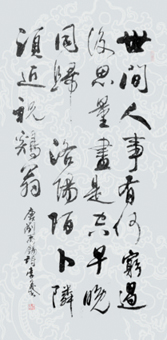 世間人事有何窮過
後思量盡是空早晚
同歸洛陽陌卜隣
須近祝鷄翁